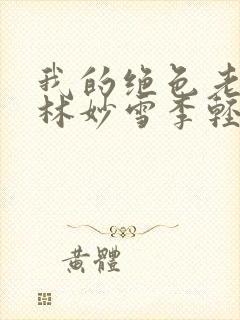 我的绝色老
林妙雪季轻
黄體